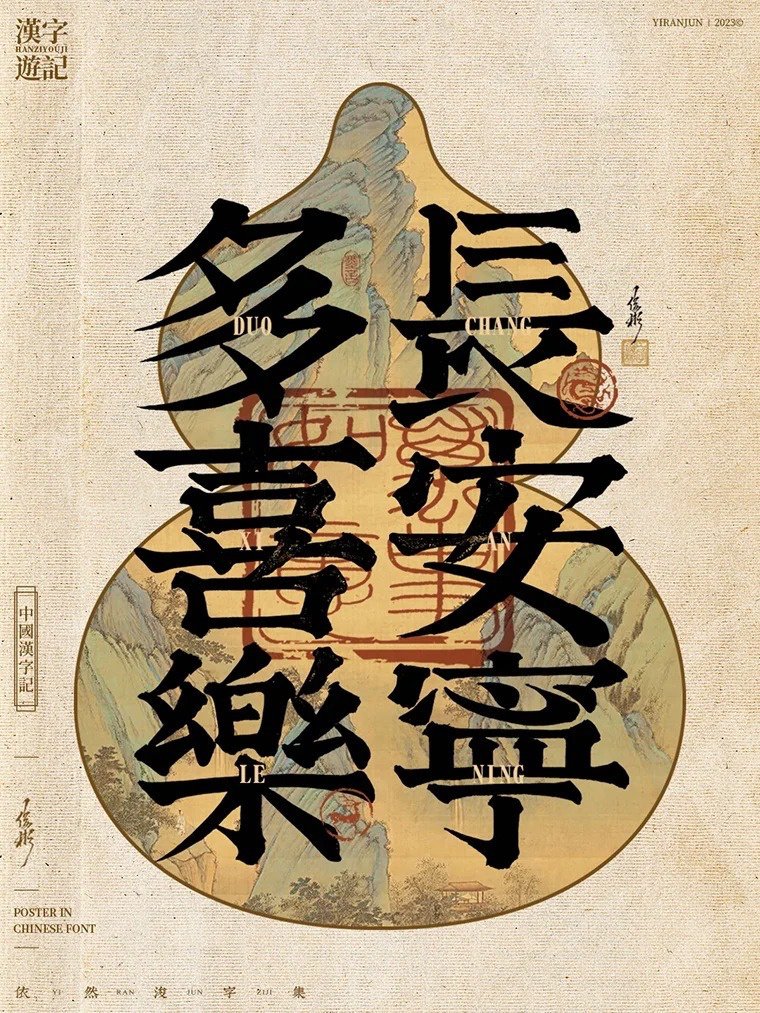 漢字
HANZIYOUJI
遊記
YIRANJUN | 2023©
長安寧
CHANG
AN
NING
多喜樂
DUO
XI
LE
中國漢字記
POSTER IN
CHINESE FONT
依 YI 然 RAN 浚 JUN 字 ZIJI 集